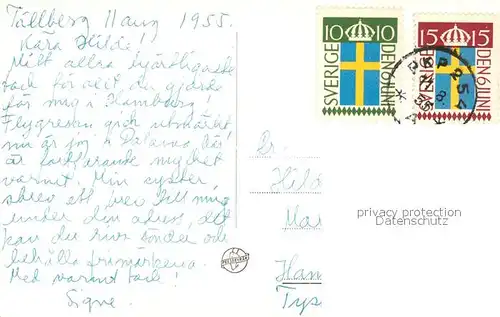 Tällberg 11 aug 1955.
Kära Hilde!
Mitt allra hjärtligaste
tack för allt du gjorde
för mig i Hamburg!
Flygresan gick utmärkt
nu är jag i Dalarna, här
är fortfarande mycket
varmt. Min syster,
skrev ett brev till mig
under din adress, det
kan du riva sönder och
behålla frimärkena.
Med varmt tack!
Signe.
10 10
SVERIGE
DEN 6 JUNI
15 15
DEN 6 JUNI
PKP 254
Hild
Ma
Han
Tys
privacy protection
Datenschutz